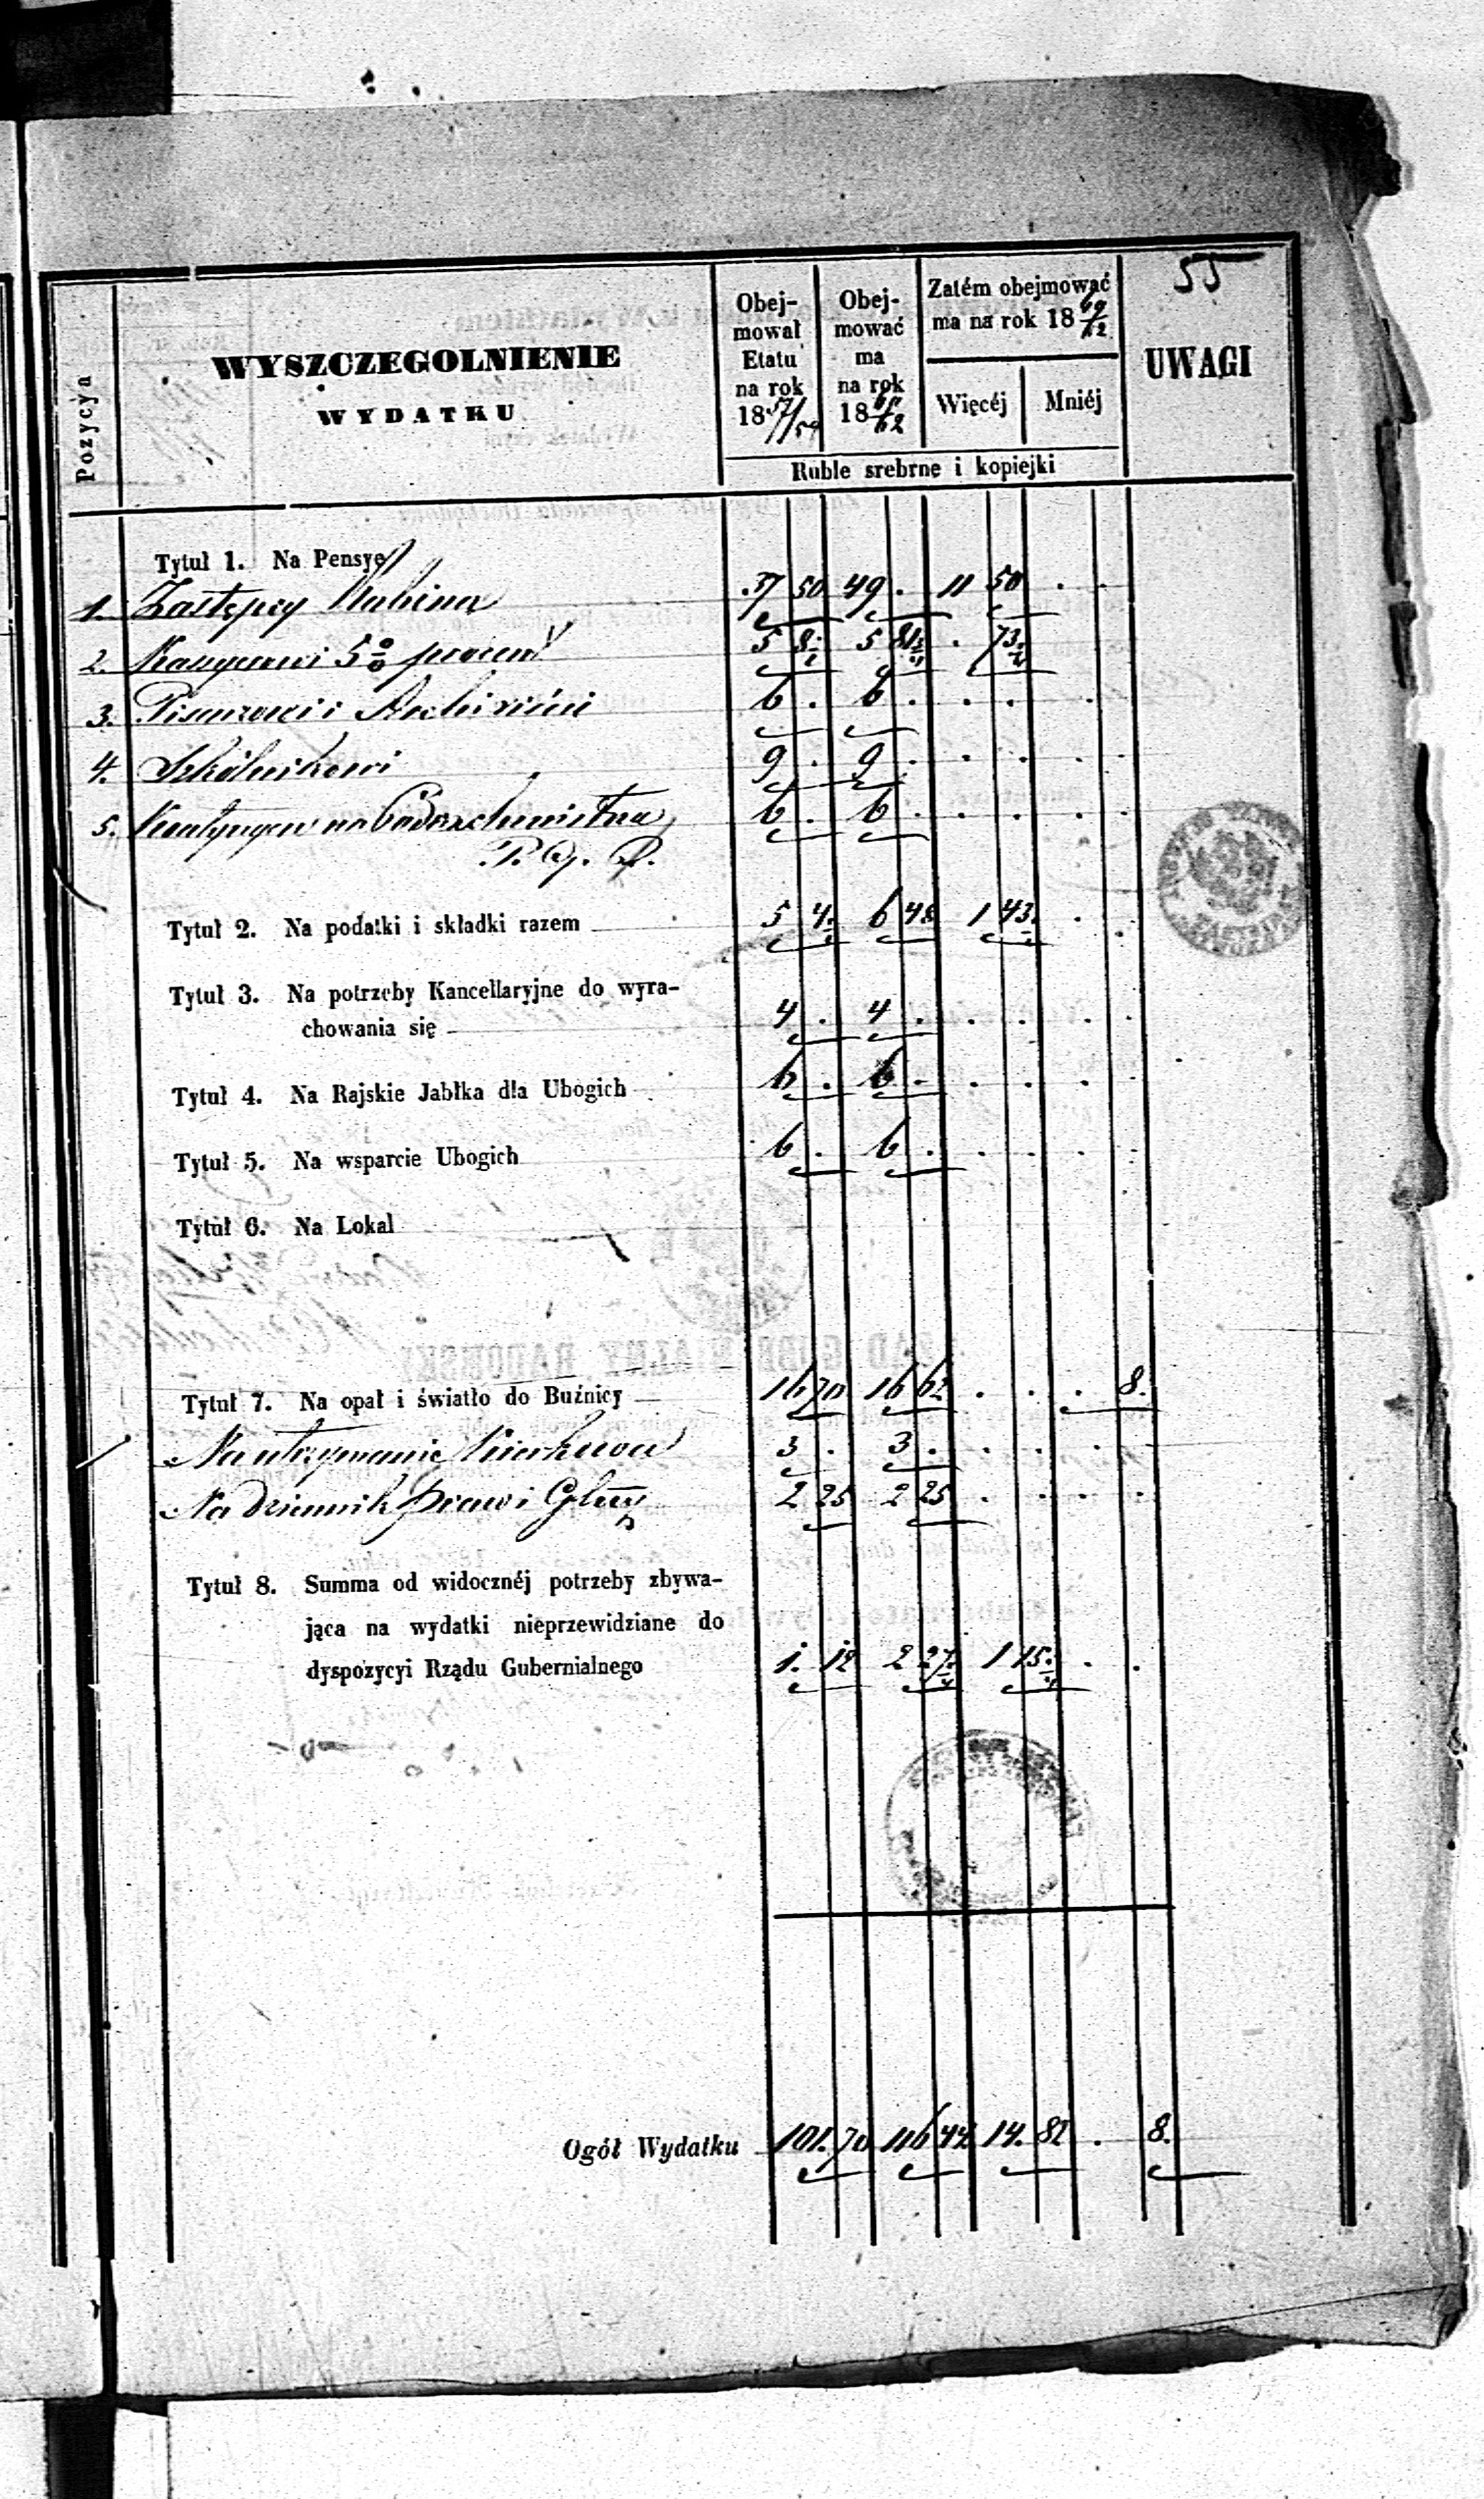 55
Pozycya
WYSZCZEGOLNIENIE
WYDATKU
Obej-
mował
Etatu
na rok
1857/59
Obej-
mować
ma
na rok
1860/62
Zatém obejmować
ma na rok 1860/62
Więcéj Mniéj
UWAGI
Ruble srebrne i kopiejki
Tytuł 1. Na Pensye
1. Zastępcy Rabina 37 50 49 . 11 50 . .
2. Kassyerowi 5 % procent 5 8 5 81 . 73
3. Pisarzowi i Archiwiście 6 . 6 . . . .
4. Szkólnikowi 9 . 9 . . . . .
5. Kontyngen na 6 . 6 . . . . .
P. G. R.
Tytuł 2. Na podatki i składki razem 5 4 6 48 1 43 . .
Tytuł 3. Na potrzeby Kancellaryjne do wyra-
chowania się 4 . 4 . . . . .
Tytuł 4. Na Rajskie Jabłka dla Ubogich 6 . 6 . . . . .
Tytuł 5. Na wsparcie Ubogich 6 . 6 . . . . .
Tytuł 6. Na Lokal
Tytuł 7. Na opał i światło do Buźnicy 16 70 16 62 . . . 8.
Na utrzymanie Kirkuwa 3 . 3 . . . .
Na Dziennik Praw i Gbny 2 25 2 25 . . . .
Tytuł 8. Summa od widocznéj potrzeby zbywa-
jąca na wydatki nieprzewidziane do
dyspozycyi Rządu Gubernialnego 1. 12 2 27 1 15 . .
Ogół Wydatku 101. 70 116 44 14. 82 . 8.